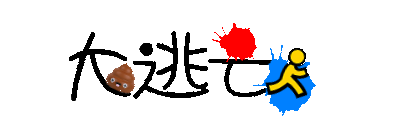 大逃亡